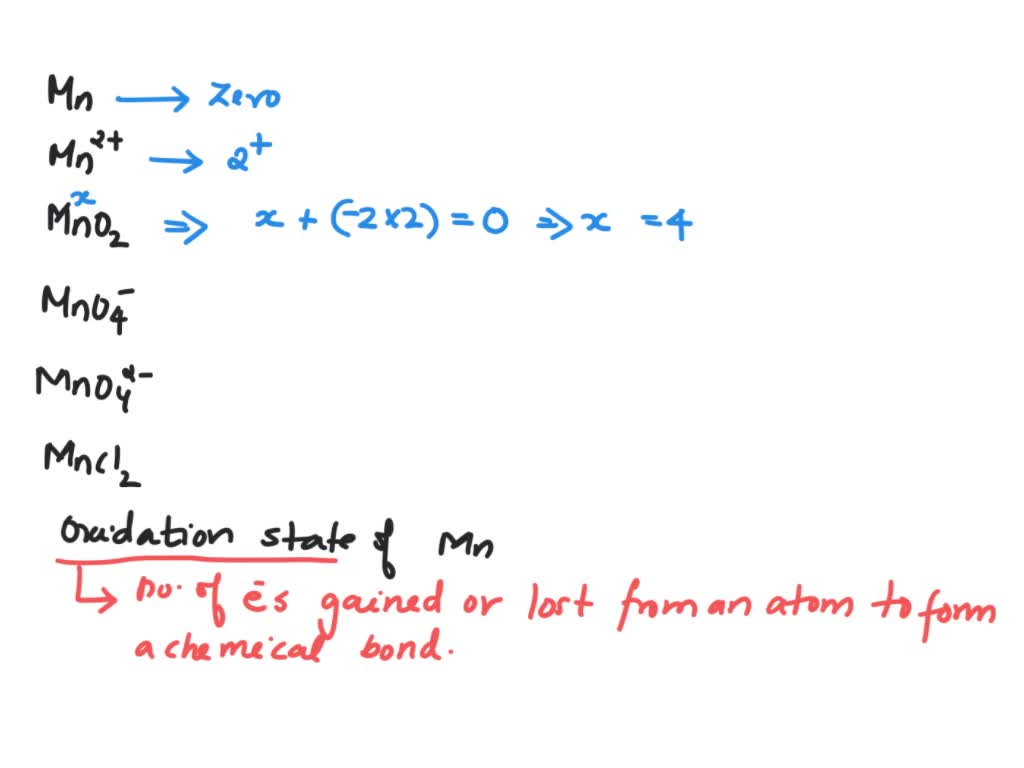 Mn → zero
Mn²⁺ → 2⁺
MnO₂ ⇒ x + (-2×2) = 0 ⇒ x = 4
x
MnO₄⁻
MnO₄²⁻
MnCl₂
oxidation state of Mn
↳ no. of ēs gained or lost from an atom to form
a chemeical bond.